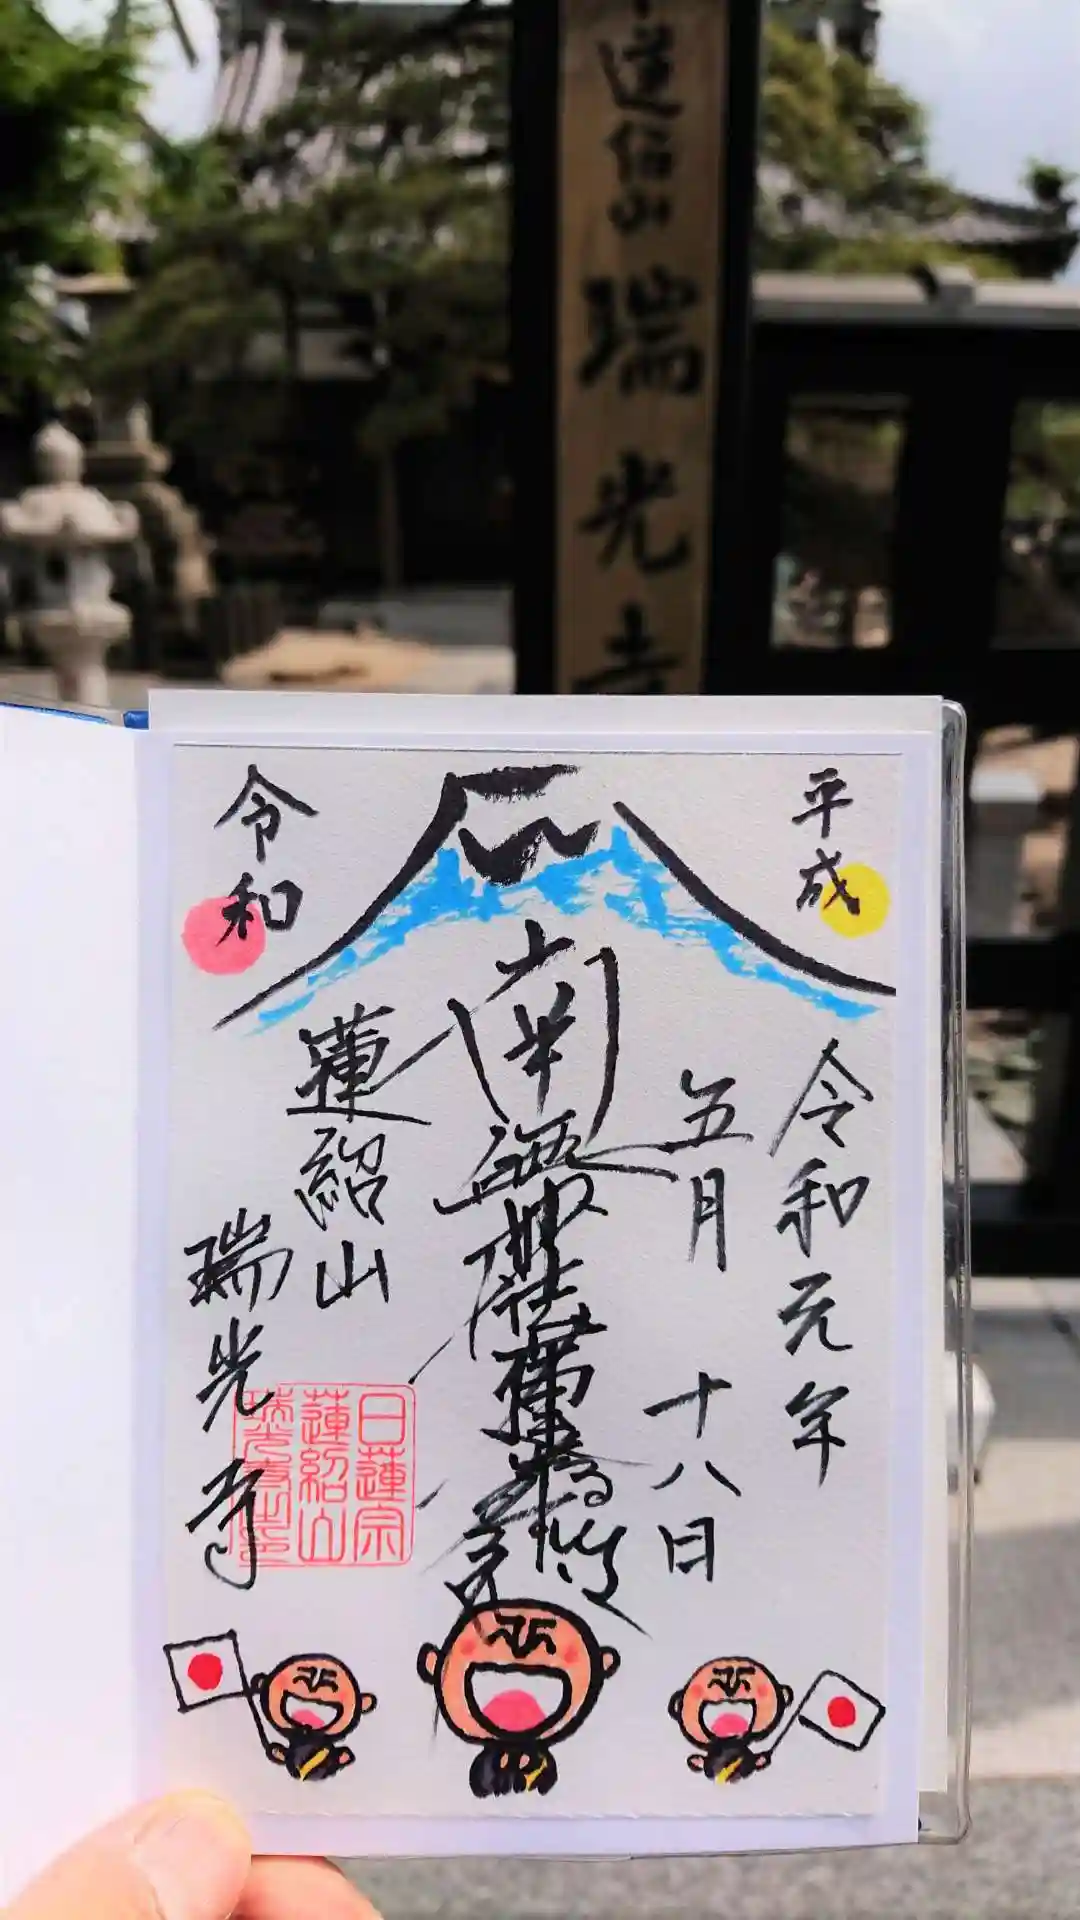 瑞光寺
平成
令和
令和元年
五月十八日
南無妙法蓮華経
蓮紹山
瑞光寺
日蓮宗
蓮紹山